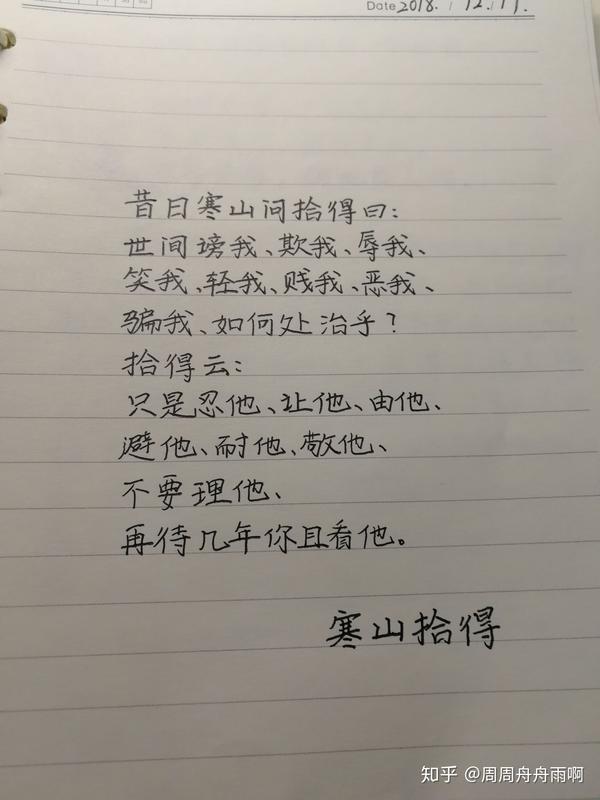 Date 2018. / 12. / 11.
昔日寒山问拾得曰：
世间谤我、欺我、辱我、
笑我、轻我、贱我、恶我、
骗我、如何处治乎？
拾得云：
只是忍他、让他、由他、
避他、耐他、敬他、
不要理他、
再待几年你且看他。
寒山拾得
知乎 @周周舟舟雨啊